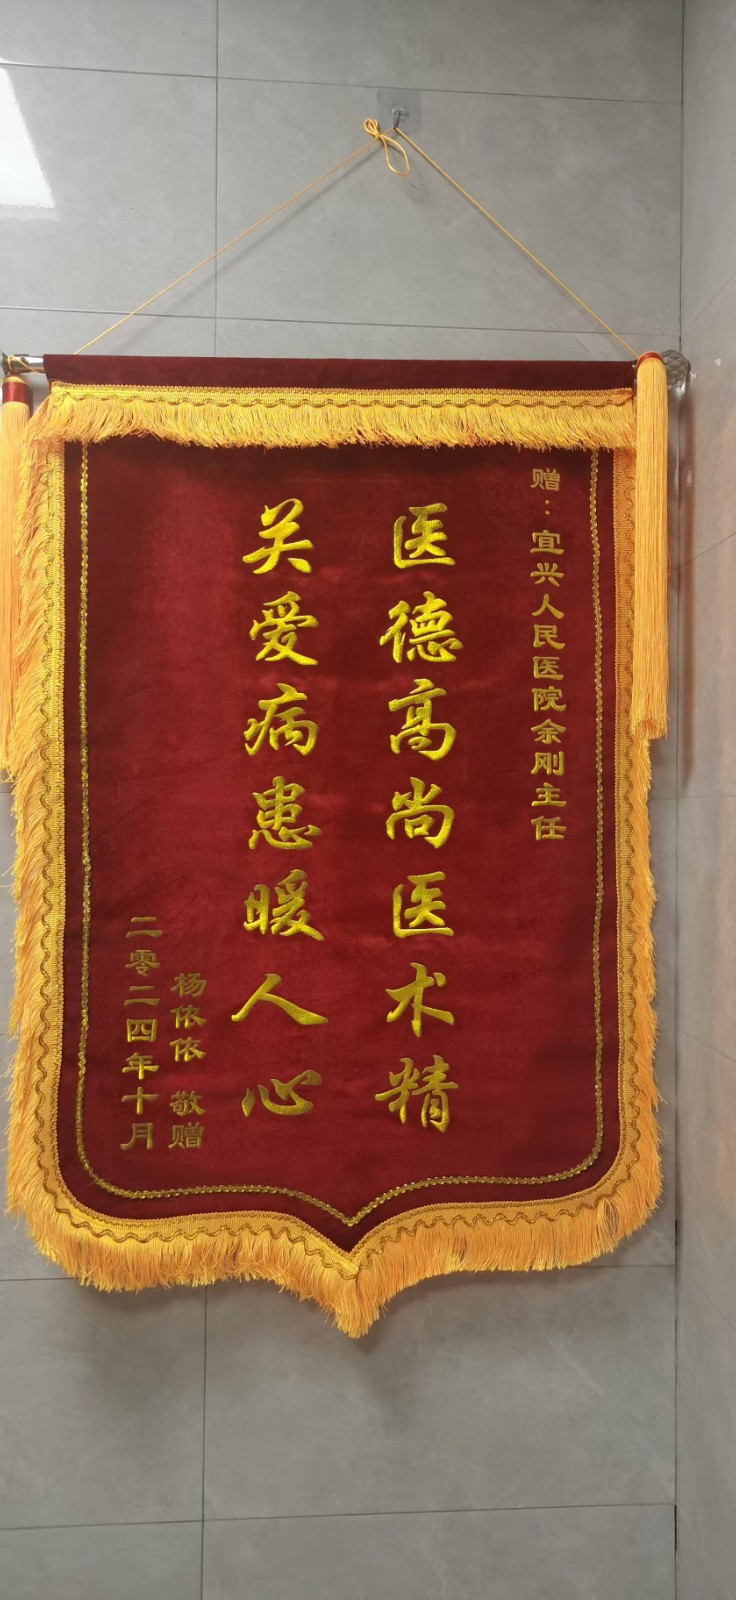 赠：宜兴人民医院余刚主任
医德高尚医术精
关爱病患暖人心
杨依依 敬赠
二零二四年十月